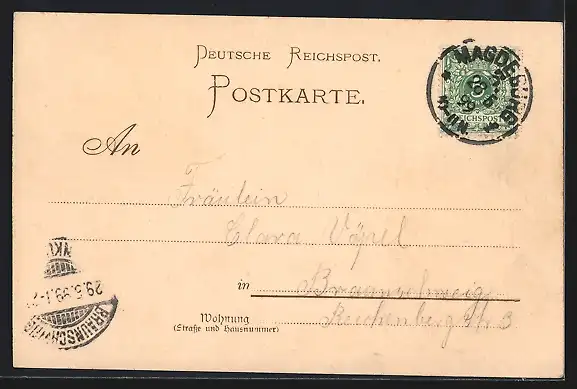 DEUTSCHE REICHSPOST.
POSTKARTE.
MAGDEBURG
REICHSPOST
An
Fräulein
Clara Vöpel
in Braunschweig
Wohnung
(Straße und Hausnummer)
Reichenbergstr. 3
29.5.99.
BRAUNSCHWEIG